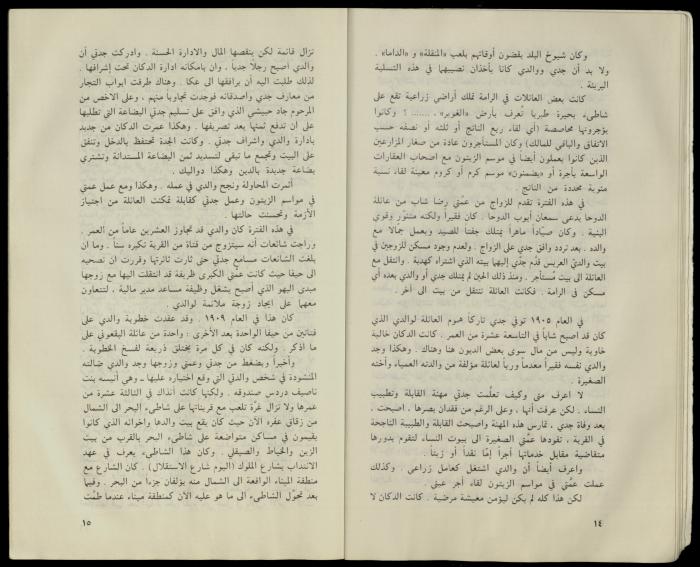 وكان شيوخ البلد يقضون أوقاتهم بلعب «المنقلة» و «الداما» .
ولا بد أن جدي ووالدي كانا يأخذان نصيبهما في هذه التسلية
البريئة .
كانت بعض العائلات في الرامة تملك أراضي زراعية تقع على
شاطىء بحيرة طبريا تُعرف بأرض «الغوير» ، ....... ؟ وكانوا
يؤجرونها محاصصة (أي لقاء ربع الناتج أو ثلثه أو نصفه حسب
الاتفاق والباقي للمالك) وكان المستأجرون عادة من صغار المزارعين
الذين كانوا يعملون أيضاً في موسم الزيتون مع اصحاب العقارات
الواسعة بأجرة أو «يضمنون» موسم كرم أو كروم معينة لقاء نسبة
مئوية محددة من الناتج .
في هذه الفترة تقدم للزواج من عمّتي رضا شاب من عائلة
الدوحا يدعى سمعان أيوب الدوحا . كان فقيراً ولكنه متنوّر وقوي
البنية . وكان صيّاداً ماهراً يمتلك جفتا للصيد ويعمل جمالا مع
والده . بعد تردد وافق جدي على الزواج . ولعدم وجود مسكن للزوجين في
بيت والديّ العريس قدّم جدّي إليهما بيته الذي اشتراه كهدية . وانتقل مع
العائلة الى بيت مُستأجر . ومنذ ذلك الحين لم يمتلك جدي أو والدي بعده أي
مسكن في الرامة . فكانت العائلة تنتقل من بيت الى آخر .
في العام ١٩٠٥ توفي جدي تاركا هموم العائلة لوالدي الذي
كان قد اصبح شاباً في التاسعة عشرة من العمر . كانت الدكان خالية
خاوية وليس من مال سوى بعض الديون هنا وهناك . وهكذا وجد
والدي نفسه فقيراً معدماً ورباً لعائلة مؤلفة من والدته العمياء وأخته
الصغيرة .
لا اعرف متى وكيف تعلّمت جدتي مهنة القابلة وتطبيب
النساء . لكن عرفت أنها ، وعلى الرغم من فقدان بصرها ، اصبحت ،
بعد وفاة جدي ، تمارس هذه المهنة واصبحت القابلة والطبيبة الناجحة
في القرية ، تقودها عمتي الصغيرة الى بيوت النساء لتقوم بدورها
متقاضية مقابل خدماتها أجراً إمّا نقداً أو زيتاً .
واعرف أيضاً أن والدي اشتغل كعامل زراعي . وكذلك
عملت عمّتي في مواسم الزيتون لقاء أجر عيني .
لكن هذا كله لم يكن ليؤمن معيشة مرضية . كانت الدكان لا
١٤
تزال قائمة لكن ينقصها المال والادارة الحسنة . وادركت جدتي أن
والدي أصبح رجلاً جدياً ، وان بامكانه ادارة الدكان تحت إشرافها .
لذلك طلبت اليه أن يرافقها الى عكا . وهناك طرقت ابواب التجار
من معارف جدي واصدقائه فوجدت تجاوباً منهم ، وعلى الاخص من
المرحوم جاد حبيشي الذي وافق على تسليم جدتي البضاعة التي تطلبها
على ان تدفع ثمنها بعد تصريفها . وهكذا عمرت الدكان من جديد
بادارة والدي واشراف جدتي . وكانت الجدة تحتفظ بالدخل وتنفق
على البيت وتجمع ما تبقى لتسديد ثمن البضاعة المستدانة وتشتري
بضاعة جديدة بالدين وهكذا دواليك .
أثمرت المحاولة ونجح والدي في عمله . وهكذا ومع عمل عمتي
في مواسم الزيتون وعمل جدتي كقابلة تمكنت العائلة من اجتياز
الأزمة وتحسنت حالتها .
في هذه الفترة كان والدي قد تجاوز العشرين عاماً من العمر .
وراجت شائعات أنه سيتزوج من فتاة من القرية تكبره سناً . وما ان
بلغت الشائعات مسامع جدتي حتى ثارت ثائرتها وقررت ان تصحبه
الى حيفا حيث كانت عمّتي الكبرى ظريفة قد انتقلت اليها مع زوجها
مبدى اليهو الذي أصبح يشغل وظيفة مساعد مدير مالية ، لتتعاون
معهما على ايجاد زوجة ملائمة لوالدي .
كان هذا في العام ١٩٠٩ . وقد عقدت خطوبة والدي على
فتاتين من حيفا الواحدة بعد الأخرى : واحدة من عائلة اليغموني على
ما اذكر . ولكنه كان في كل مرة يختلق ذريعة لفسخ الخطوبة .
وأخيراً وبضغط من جدتي وعمتي وزوجها وجد والدي ضالته
المنشودة في شخص والدتي التي وقع اختياره عليها ـ وهي أنيسه بنت
ناصيف دردس صندوقه . ولكنها كانت آنذاك في الثالثة عشرة من
عمرها ولا تزال غرّة تلعب مع قريناتها على شاطىء البحر الى الشمال
من زقاق عفره الآن حيث كان يقع بيت والدها واخوانه الذي كانوا
يقيمون في مساكن متواضعة على شاطىء البحر بالقرب من بيت
الزبن والخياط والصيقلي . وكان هذا الشاطىء يعرف في عهد
الانتداب بشارع الملوك (اليوم شارع الاستقلال) . كان الشارع مع
منطقة الميناء الواقعة الى الشمال منه يؤلفان جزءا من البحر . وفيما
بعد تحوّل الشاطىء الى ما هو عليه الآن كمنطقة ميناء عندما طمّت
١٥